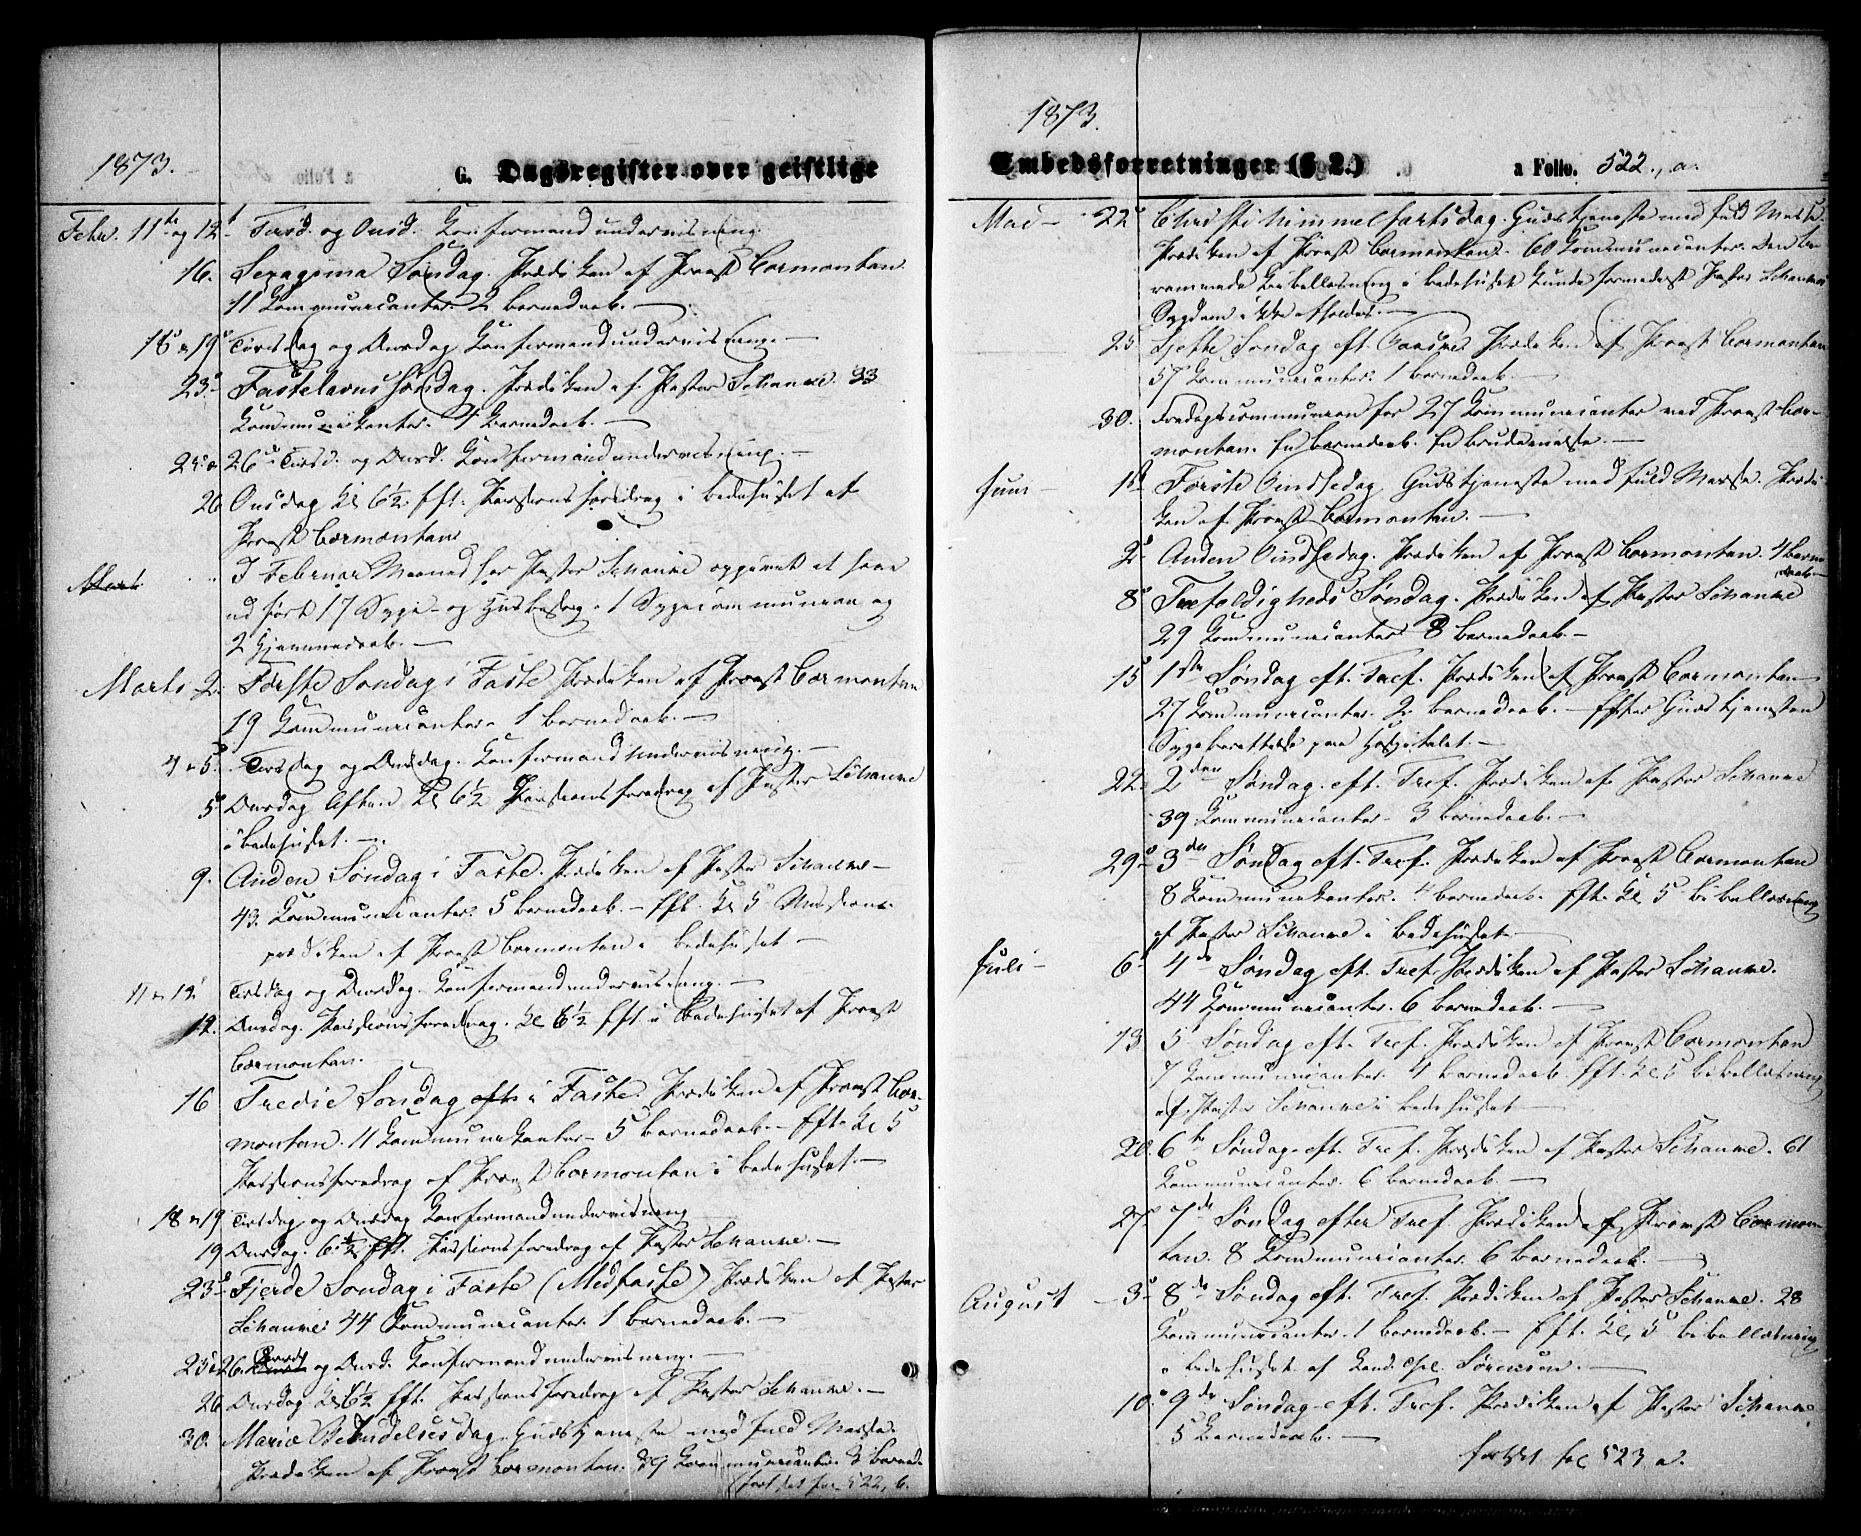 1873.
G. Dagsregister over geistlige
Febr. 11te og 12t Tirsd. og Onsd. Konfirmandundervisning.
16. Sexagesima Søndag. Prædiken af Provst Cormontan.
11 Kommunicanter. 2 Barnedaab. —
18 & 19d Tirsdag og Onsdag Konfirmandundervisning. —
23d Fastelavns Søndag. Prædiken af Pastor Schanne. 33
Kommunikanter. 4 Barnedaab. —
25 & 26d Tirsd. og Onsd. Konfirmandundervisning. —
26 Onsdag Kl 6½ Eft. Passionsforedrag i Bedehuset af
Provst Cormontan
I Februar Maaned har Pastor Schanne opgivet at have
udført 17 Syge- og Husbesøg. 1 Sygecommunion og
2 Hjemmedaab. —
Marts 2. Første Søndag i Faste. Prædiken af Provst Cormontan
19 Kommunicanter. 1 Barnedaab. —
4 & 5d. Tirsdag og Onsdag. Konfirmandundervisning. —
5d Onsdag Aften Kl 6½ Passionsforedrag af Pastor Schanne
i Bedehuset. —
9. Anden Søndag i Faste. Prædiken af Pastor Schanne —
43. Kommunicanter. 5 Barnedaab. — Eft. Kl 5 Missions-
prædiken af Provst Cormontan i Bedehuset —
11 & 12d Tirsdag og Onsdag. Konfirmandundervisning. —
12. Onsdag. Passionsforedrag. Kl 6½ Eft. i Bedehuset af Provst
Cormontan.
16 Tredie Søndag eft. i Faste. Prædiken af Provst Cor-
montan. 11 Kommunikanter. 5 Barnedaab. — Eft. Kl 5
Passionsforedrag af Provst Cormontan i Bedehuset. —
18 & 19 Tirsdag og Onsdag Konfirmandundervisning
19 Onsdag. 6½ Eft. Passionsforedrag af Pastor Schanne. —
23d Fjerde Søndag i Faste (Midfaste) Prædiken af Pastor
Schanne. 44 Kommunicanter. 1 Barnedaab. —
25 & 26. og Onsd. Konfirmandundervisning. —
26 Onsdag Kl 6½ Eft. Passionsforedrag af Pastor Schanne. —
30. Mariæ Bebudelsesdag. Gudstjeneste med fuld Messe.
Prædiken af Provst Cormontan. 89 Kommunicanter. 3 Barned.
(fortsat fol. 522, b.
1873.
Embedsforretninger (§ 2.)
a Folio. 522., a.
Mai — 22d Christi Himmelfartsdag. Gudstjeneste med fuld Messe.
Prædiken af Provst Cormontan. 60 Kommunicanter. Den be-
rammede Bibellæsning i Bedehuset kunde formedelst Pastor Schannes
Sygdom ikke afholdes. —
25 Sjette Søndag eft. Paaske. Prædiken af Provst Cormontan
57 Kommunicanter. 1 Barnedaab. —
30. Fredagscommunion for 27 Kommunicanter ved Provst Cor-
montan. En Barnedaab. En Brudevielse. —
Juni — 1ste Første Pindsedag Gudstjeneste med fuld Messe. Prædi-
ken af Provst Cormontan. —
2d Anden Pindsedag. Prædiken af Provst Cormontan. 4 Barne
daab —
8d Trefoldigheds Søndag. Prædiken af Pastor Schanne
29 Kommunicanter 8 Barnedaab. —
15 1ste Søndag eft. Tref. Prædiken af Provst Cormontan
27 Kommunicanter. 2 Barnedaab. — Efter Gudstjenesten
Sygeberettelse paa Hospitalet. —
22. 2den Søndag. eft. Tref. Prædiken af Pastor Schanne
39 Kommunicanter. 3 Barnedaab. —
29d 3die Søndag eft. Tref. Prædiken af Provst Cormontan
8 Kommunikanter. 4 Barnedaab. Eft. Kl 5 Bibellæsning
af Pastor Schanne i Bedehuset. —
Juli — 6t 4de Søndag eft. Tref. Prædiken af Pastor Schanne.
44 Kommunicanter. 6 Barnedaab. —
13 5 Søndag eft. Tref. Prædiken af Provst Cormontan
7 Kommunicanter. 4 Barnedaab. Eft. Kl 5 Bibellæsning
af Pastor Schanne i Bedehuset —
20. 6te Søndag. eft. Tref. Prædiken af Pastor Schanne. 61
Kommunicanter. 6 Barnedaab. —
27. 7de Søndag efter Tref. Prædiken af Provst Cormon-
tan. 8 Kommunicanter. 6 Barnedaab. —
August — 3d 8de Søndag eft. Tref. Prædiken af Pastor Schanne. 28
Kommunicanter. 1 Barnedaab. — Eft. Kl. 5 Bibellæsning
i Bedehuset af Cand. Sørensen. —
10. 9de Søndag. eft. Tref. Prædiken af Pastor Schanne.
5 Barnedaab. —
fortsat fol 523 a.